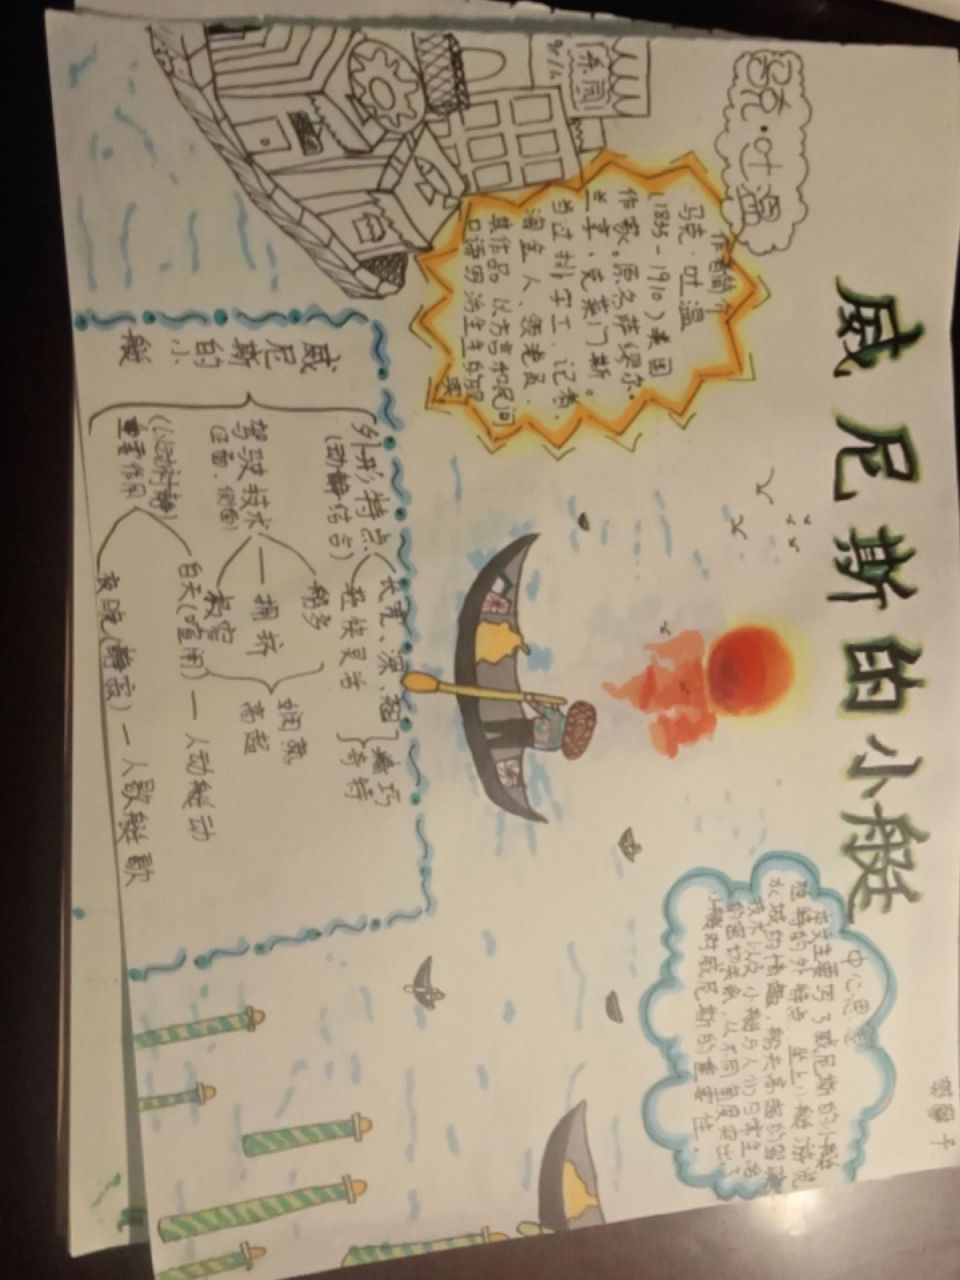 威尼斯的小艇
马克·吐温
作者简介
马克·吐温
(1835-1910)美国
作家。原名萨缪尔·
兰亨·克莱门斯。
当过排字工、记者、
淘金人、领港员。
其作品以方言和民间
口语
中心思想
本文主要写了威尼斯的小艇
独特的外形特点、坐上小艇游览
水城的情趣，船夫高超的驾驶
技术以及小艇与人们日常生活
的密切关系，从不同角度突出了
小艇对威尼斯的重要性。
威尼斯的小艇
外形特点
(动静结合)
长、窄、深、翘
轻快灵活
奇特
驾驶技术
(正面、侧面)
拥挤
娴熟
高超
重要作用
白天(喧闹)一人动艇动
夜晚(静寂)一人歇艇歇